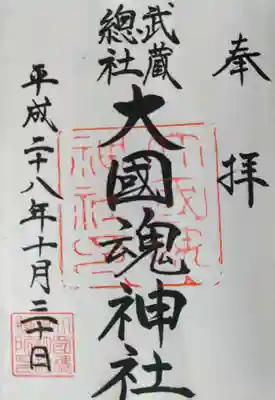 奉拝
武蔵
總社
大國魂神社
平成二十八年十月三十日